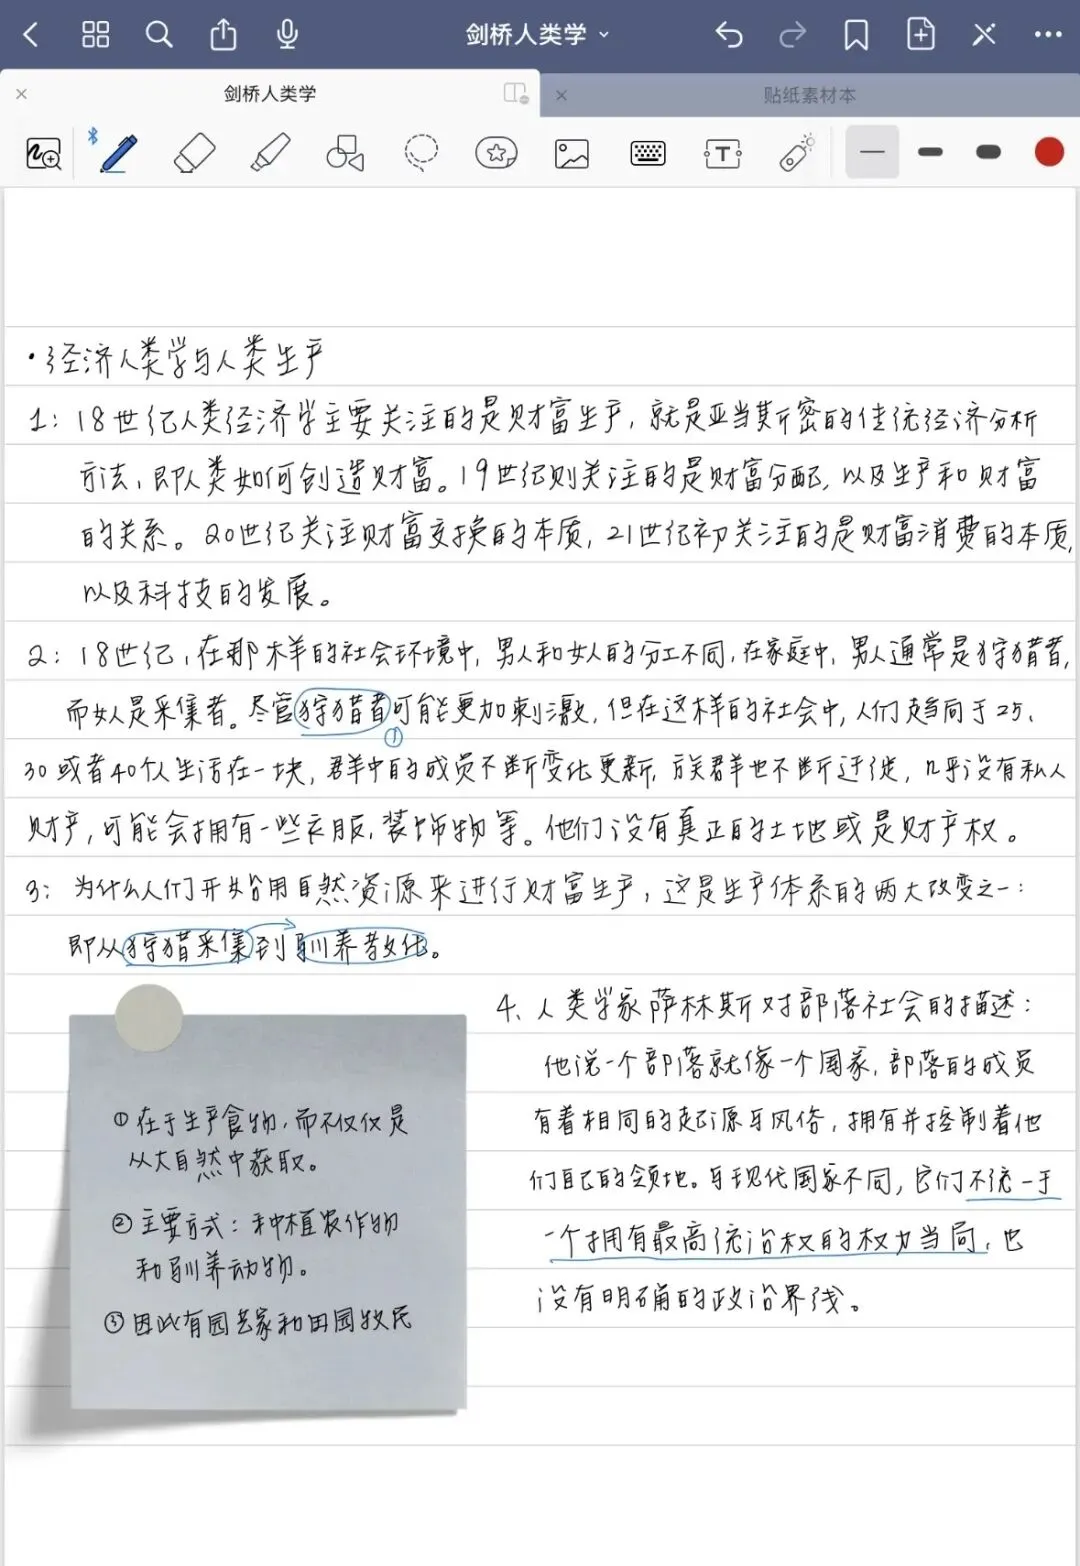 剑桥人类学
剑桥人类学
贴纸素材本
·经济人类学与人类生产
1: 18世纪人类经济学主要关注的是财富生产, 就是亚当斯密的传统经济分析
方法, 即人类如何创造财富。19世纪则关注的是财富分配, 以及生产和财富
的关系。20世纪关注财富交换的本质, 21世纪初关注的是财富消费的本质,
以及科技的发展。
2: 18世纪, 在那样的社会环境中, 男人和女人的分工不同, 在家庭中, 男人通常是狩猎者,
而女人是采集者。尽管狩猎者可能更加刺激, 但在这样的社会中, 人们趋向于25、
①
30或者40个人生活在一块, 群中的成员不断变化更新, 族群也不断迁徙, 几乎没有私人
财产, 可能会拥有一些衣服, 装饰物等。他们没有真正的土地或是财产权。
3: 为什么人们开始用自然资源来进行财富生产, 这是生产体系的两大改变之一:
即从狩猎采集到驯养教化。
①在于生产食物, 而不仅仅是
从大自然中获取。
②主要方式: 种植农作物
和驯养动物。
③因此有园艺家和田园牧民
4、人类学家萨林斯对部落社会的描述:
他说一个部落就像一个国家, 部落的成员
有着相同的起源与风俗, 拥有并控制着他
们自己的领地。与现代国家不同, 它们不统一于
一个拥有最高统治权的权力当局, 也
没有明确的政治界线。